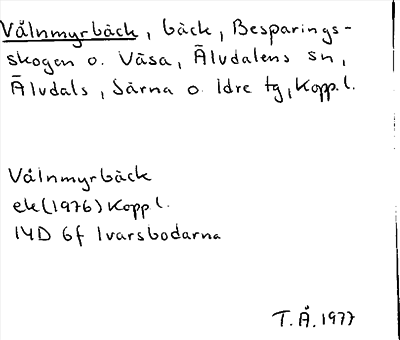 Vålnmyrbäck, bäck, Besparings-
skogen o. Våsa, Älvdalens sn,
Älvdals, Särna o. Idre tg, Kopp.l.
Vålnmyrbäck
ek (1976) Kopp l.
14D 6f Ivarsbodarna
T.Å. 1977